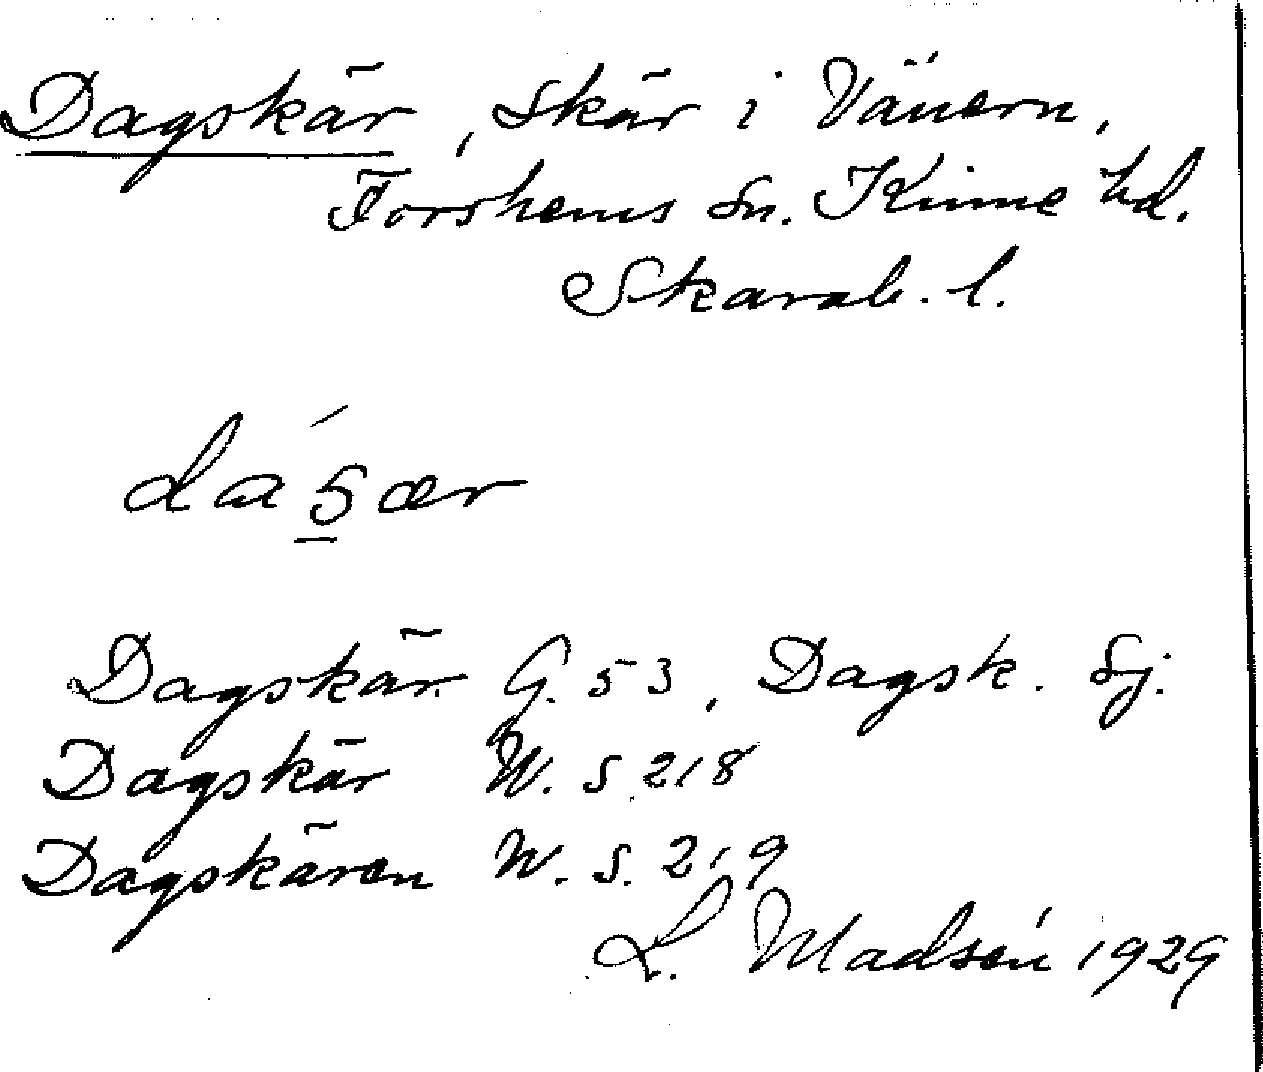 Dagskär, skär i Vänern,
Forshems sn. Kinne hd.
Skarab. l.
Dagskär G. 53, Dagsk. Sj.
Dagskär W. S. 218
Dagskären W. S. 219
L. Madsén 1929